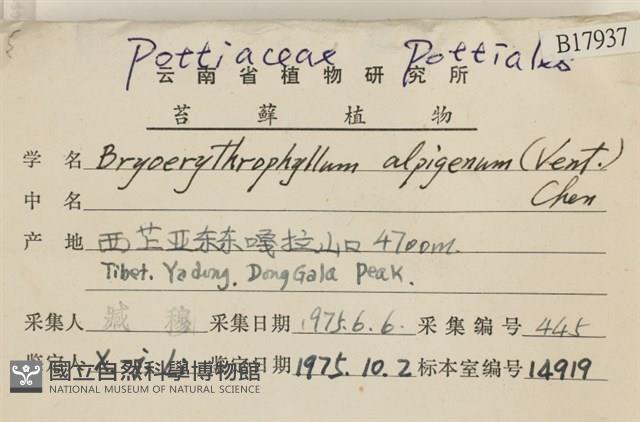 B17937
Pottiaceae Pottiales
云南省植物研究所
苔藓植物
学名 Bryoerythrophyllum alpigenum (Vent.)
中名 Chen
产地 西芷亚东东嘎拉山口 4700m.
Tibet. Yadong. DongGala Peak.
采集人 臧穆 采集日期 1975.6.6. 采集编号 445
鉴定人 X-j. Li 鉴定日期 1975.10.2 标本室编号 14919
國立自然科學博物館
NATIONAL MUSEUM OF NATURAL SCIENCE